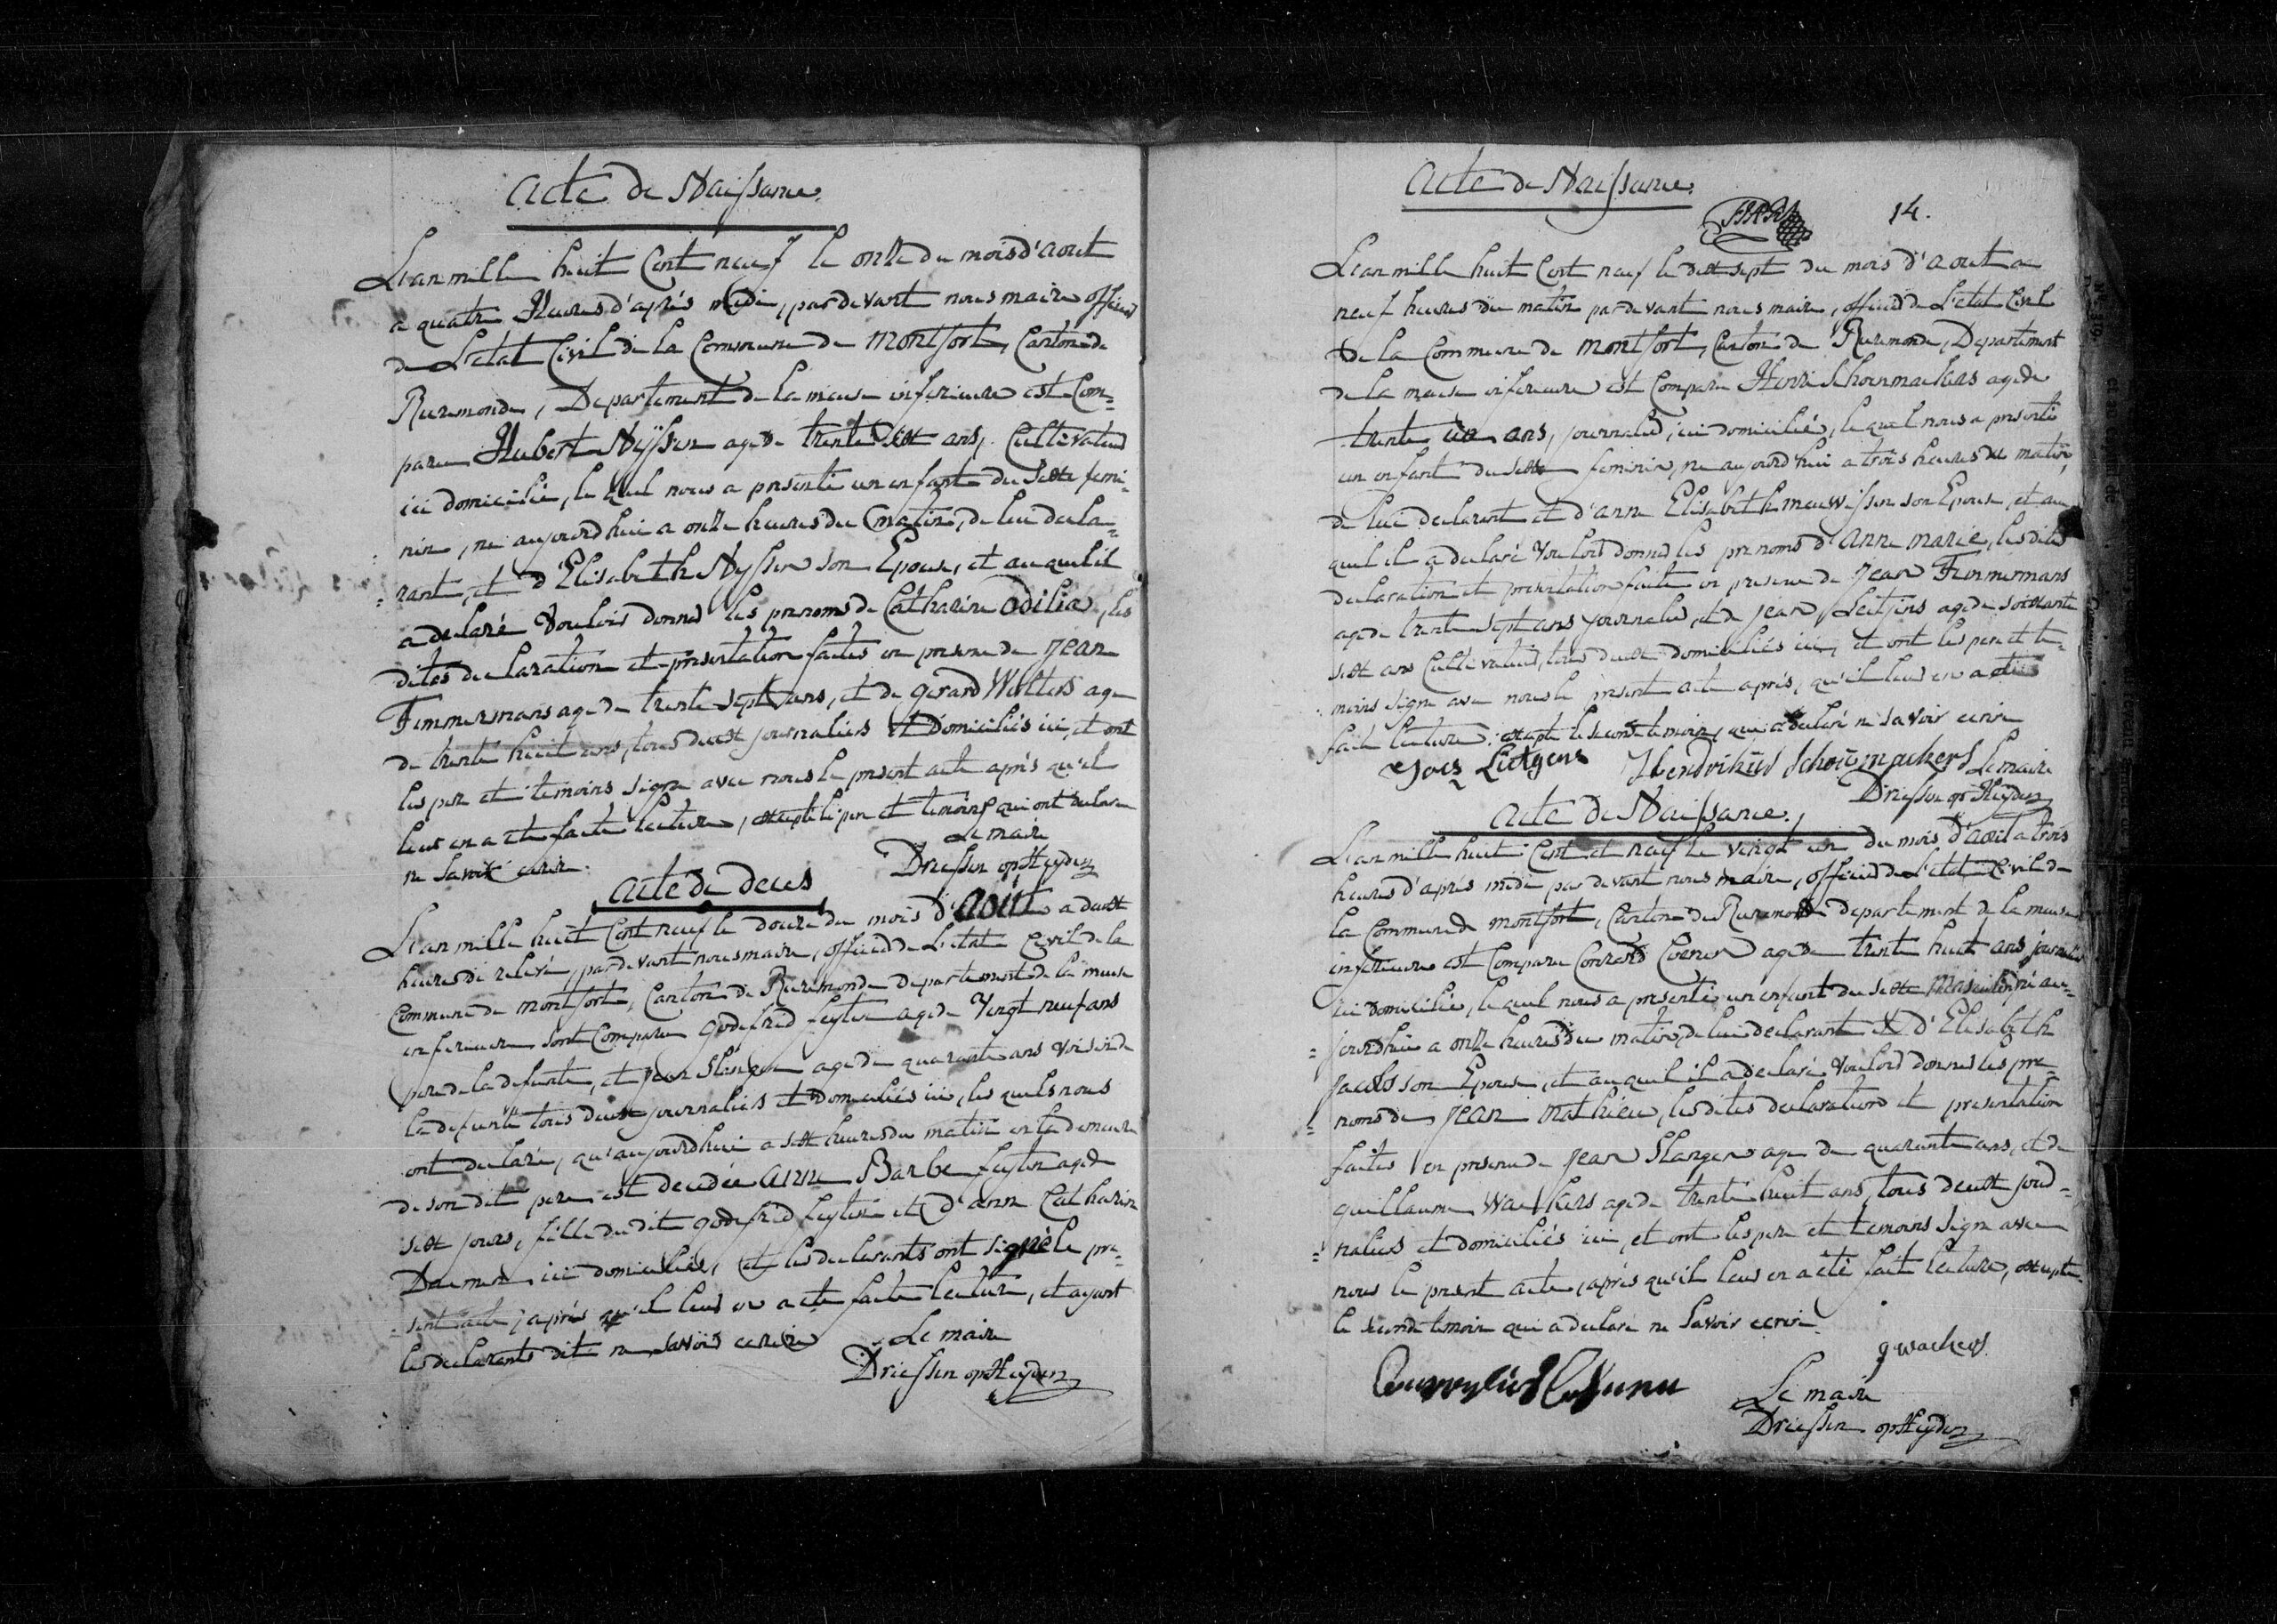 Acte de Naissance.
L'an mille huit Cent neuf le onze du mois d'aout
a quatre Heures d'après midi, pardevant nous maire officier
de L'etat Civil de la Commune de Montfort, Canton de
Ruremonde, Departement de la meuse inferieure est Com=
paru Hubert Nÿssen agé de trente six ans, Cultivateur
ici domicilié, le quel nous a presenté un enfant du Sexe femi=
nin, né aujourd'hui a onze heures du matin, de lui decla=
=rant, et d'Elisabeth Nyssen son Epouse, et auquel il
a declaré Vouloir donner les prenoms de Catharine Odilia, les
dites declaration et presentation faites en presence de Jean
Timmermans agé de trente sept ans, et de gerard Wolters agé
de trente huit ans, tous deux journaliers et Domiciliés ici, et ont
les pere et temoins signé avec nous le present acte après qu'il
leur en a eté faite lecture, excepté le pere et temoins qui ont declaré
ne Savoir ecrire.
Le maire
Driessen opHeyden
acte de deces
L'an mille huit Cent neuf le douze du mois d'Août a deux
heures de relevé, pardevant nous maire, officier de L'etat Civil de la
Commune de montfort, Canton de Ruremonde departement de la meuse
inferieure sont Comparu godefrid feyten agé de Vingt neuf ans
pere de la defunte, et jean Slangen agé de quarante ans voisin de
la defunte tous deux journaliers et domiciliés ici, les quels nous
ont declaré, qu'aujourdhui a six heures du matin en la demeure
de son dit pere est decedée Anne Barbe feyten agé de
six jours, fille du dit godefrid feyten et d'anne Catharine
ici domiciliés, et les declarants ont signé le pre=
=sent acte, après qu'il leur en a eté faite lecture, et ayant
les declarants dit ne savoir ecrire
Le maire
Driessen opHeyden
Acte de Naissance.
14.
L'an mille huit Cent neuf le dix sept du mois d'aout a
neuf heures du matin pardevant nous maire, officier de L'etat Civil
de la Commune de Montfort, Canton de Ruremonde, Departement
de la meuse inferieure est Comparu Henri Schoenmackers agé de
trente un ans, journalier, ici domicilié, le quel nous a presenté
un enfant du sexe feminin, né aujourd'hui a trois heures du matin,
de lui declarant et d'anne Elisabeth meuwissen son Epouse, et au
quel il a declaré Vouloir donner les prenoms d'Anne marie, les dites
declaration et presentation faite en presence de Jean Timmermans
agé de trente sept ans journalier, et de jean Leitjens agé de soixante
six ans Cultivateur, tous deux domiciliés ici, et ont les pere et te=
moins signé avec nous le present acte après, qu'il leur en a eté
faite lecture, excepté le second temoin, qui a declaré ne savoir ecrire
Joes Lutgens Hendrikus Schoenmackers Le maire
Driessen op Heyden
Acte de Naissance.
L'an mille huit Cent et neuf le vingt un du mois d'aout a trois
heures d'après midi pardevant nous maire, officier de L'etat Civil de
la Commune de montfort, Canton de Ruremonde departement de la meuse
inferieure est Comparu Conrard Coenen agé de trente huit ans journalier
ici domicilié, le quel nous a presenté un enfant du sexe Masculin né au=
=jourdhui a onze heures du matin, de lui declarant et d'Elisabeth
Jacobs son Epouse, et auquel il a declaré Vouloir donner les pre=
=noms de Jean Mathieu, les dites declaration et presentation
faites en presence de Jean Slangen agé de quarante ans, et de
guillaume Wackers agé de trente huit ans, tous deux jour=
=naliers et domiciliés ici, et ont les pere et temoins signé avec
nous le present acte, après qu'il leur en a eté fait lecture, excepté
le second temoin qui a declaré ne Savoir ecrire.
g wackers
Le maire
Driessen opHeyden